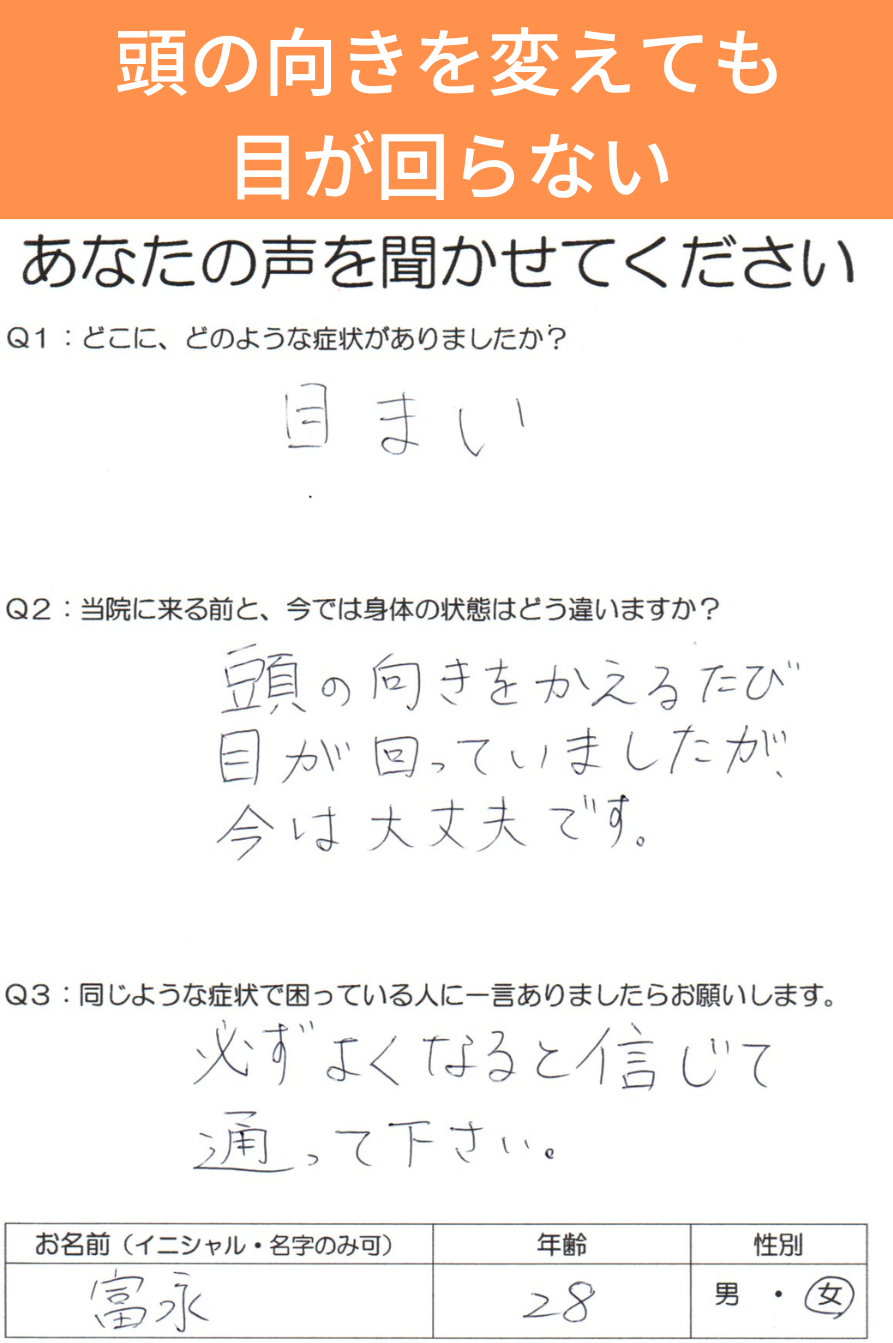 頭の向きを変えても
目が回らない
あなたの声を聞かせてください
Q1：どこに、どのような症状がありましたか？
目まい
Q2：当院に来る前と、今では身体の状態はどう違いますか？
頭の向きをかえるたび
目が回っていましたが、
今は大丈夫です。
Q3：同じような症状で困っている人に一言ありましたらお願いします。
必ずよくなると信じて
通って下さい。
お名前（イニシャル・名字のみ可） 年齢 性別
富永 28 男・女